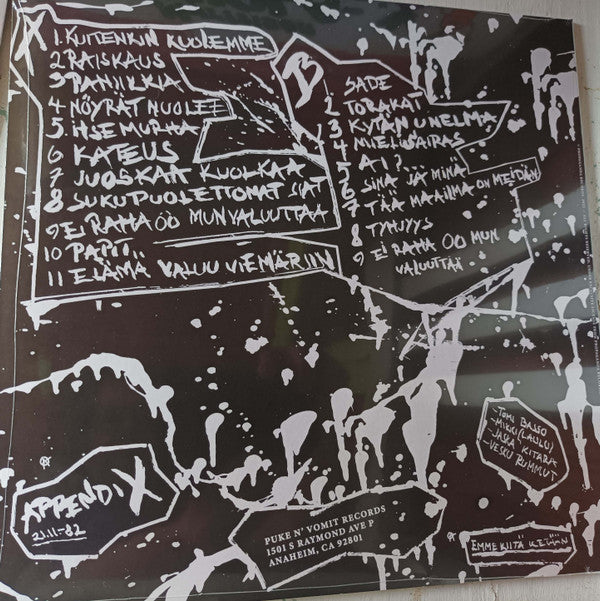 1. KUITENKIN KUOLEMME
2 RAISKAUS
3 PANIIKKIA
4 NÖYRÄT NUOLEE
5 ITSEMURHA
6 KATEUS
7 JUOSKAA KUOLKAA
8 SUKUPUOLETTOMAT SIAT
9 EI RAHA OO MUN VALUUTTAA
10 PAPIT
11 ELÄMÄ VALUU VIEMÄRIIN
B
SADE
2 TORAKAT
3 KYTÄN UNELMA
4 MIELISAIRAS
5 AI?
6 SINÄ JA MINÄ
7 TÄÄ MAAILMA ON MEIDÄN
8 TYHJYYS
9 EI RAHA OO MUN
VALUUTTAA
-TOMI BASSO
-MIKKI (LAULU)
-JASKA KITARA
-VESKU RUMMUT
APPENDIX
21.11-82
PUKE N' VOMIT RECORDS
1501 S RAYMOND AVE P
ANAHEIM, CA 92801
EMME KIITÄ KETÄÄN